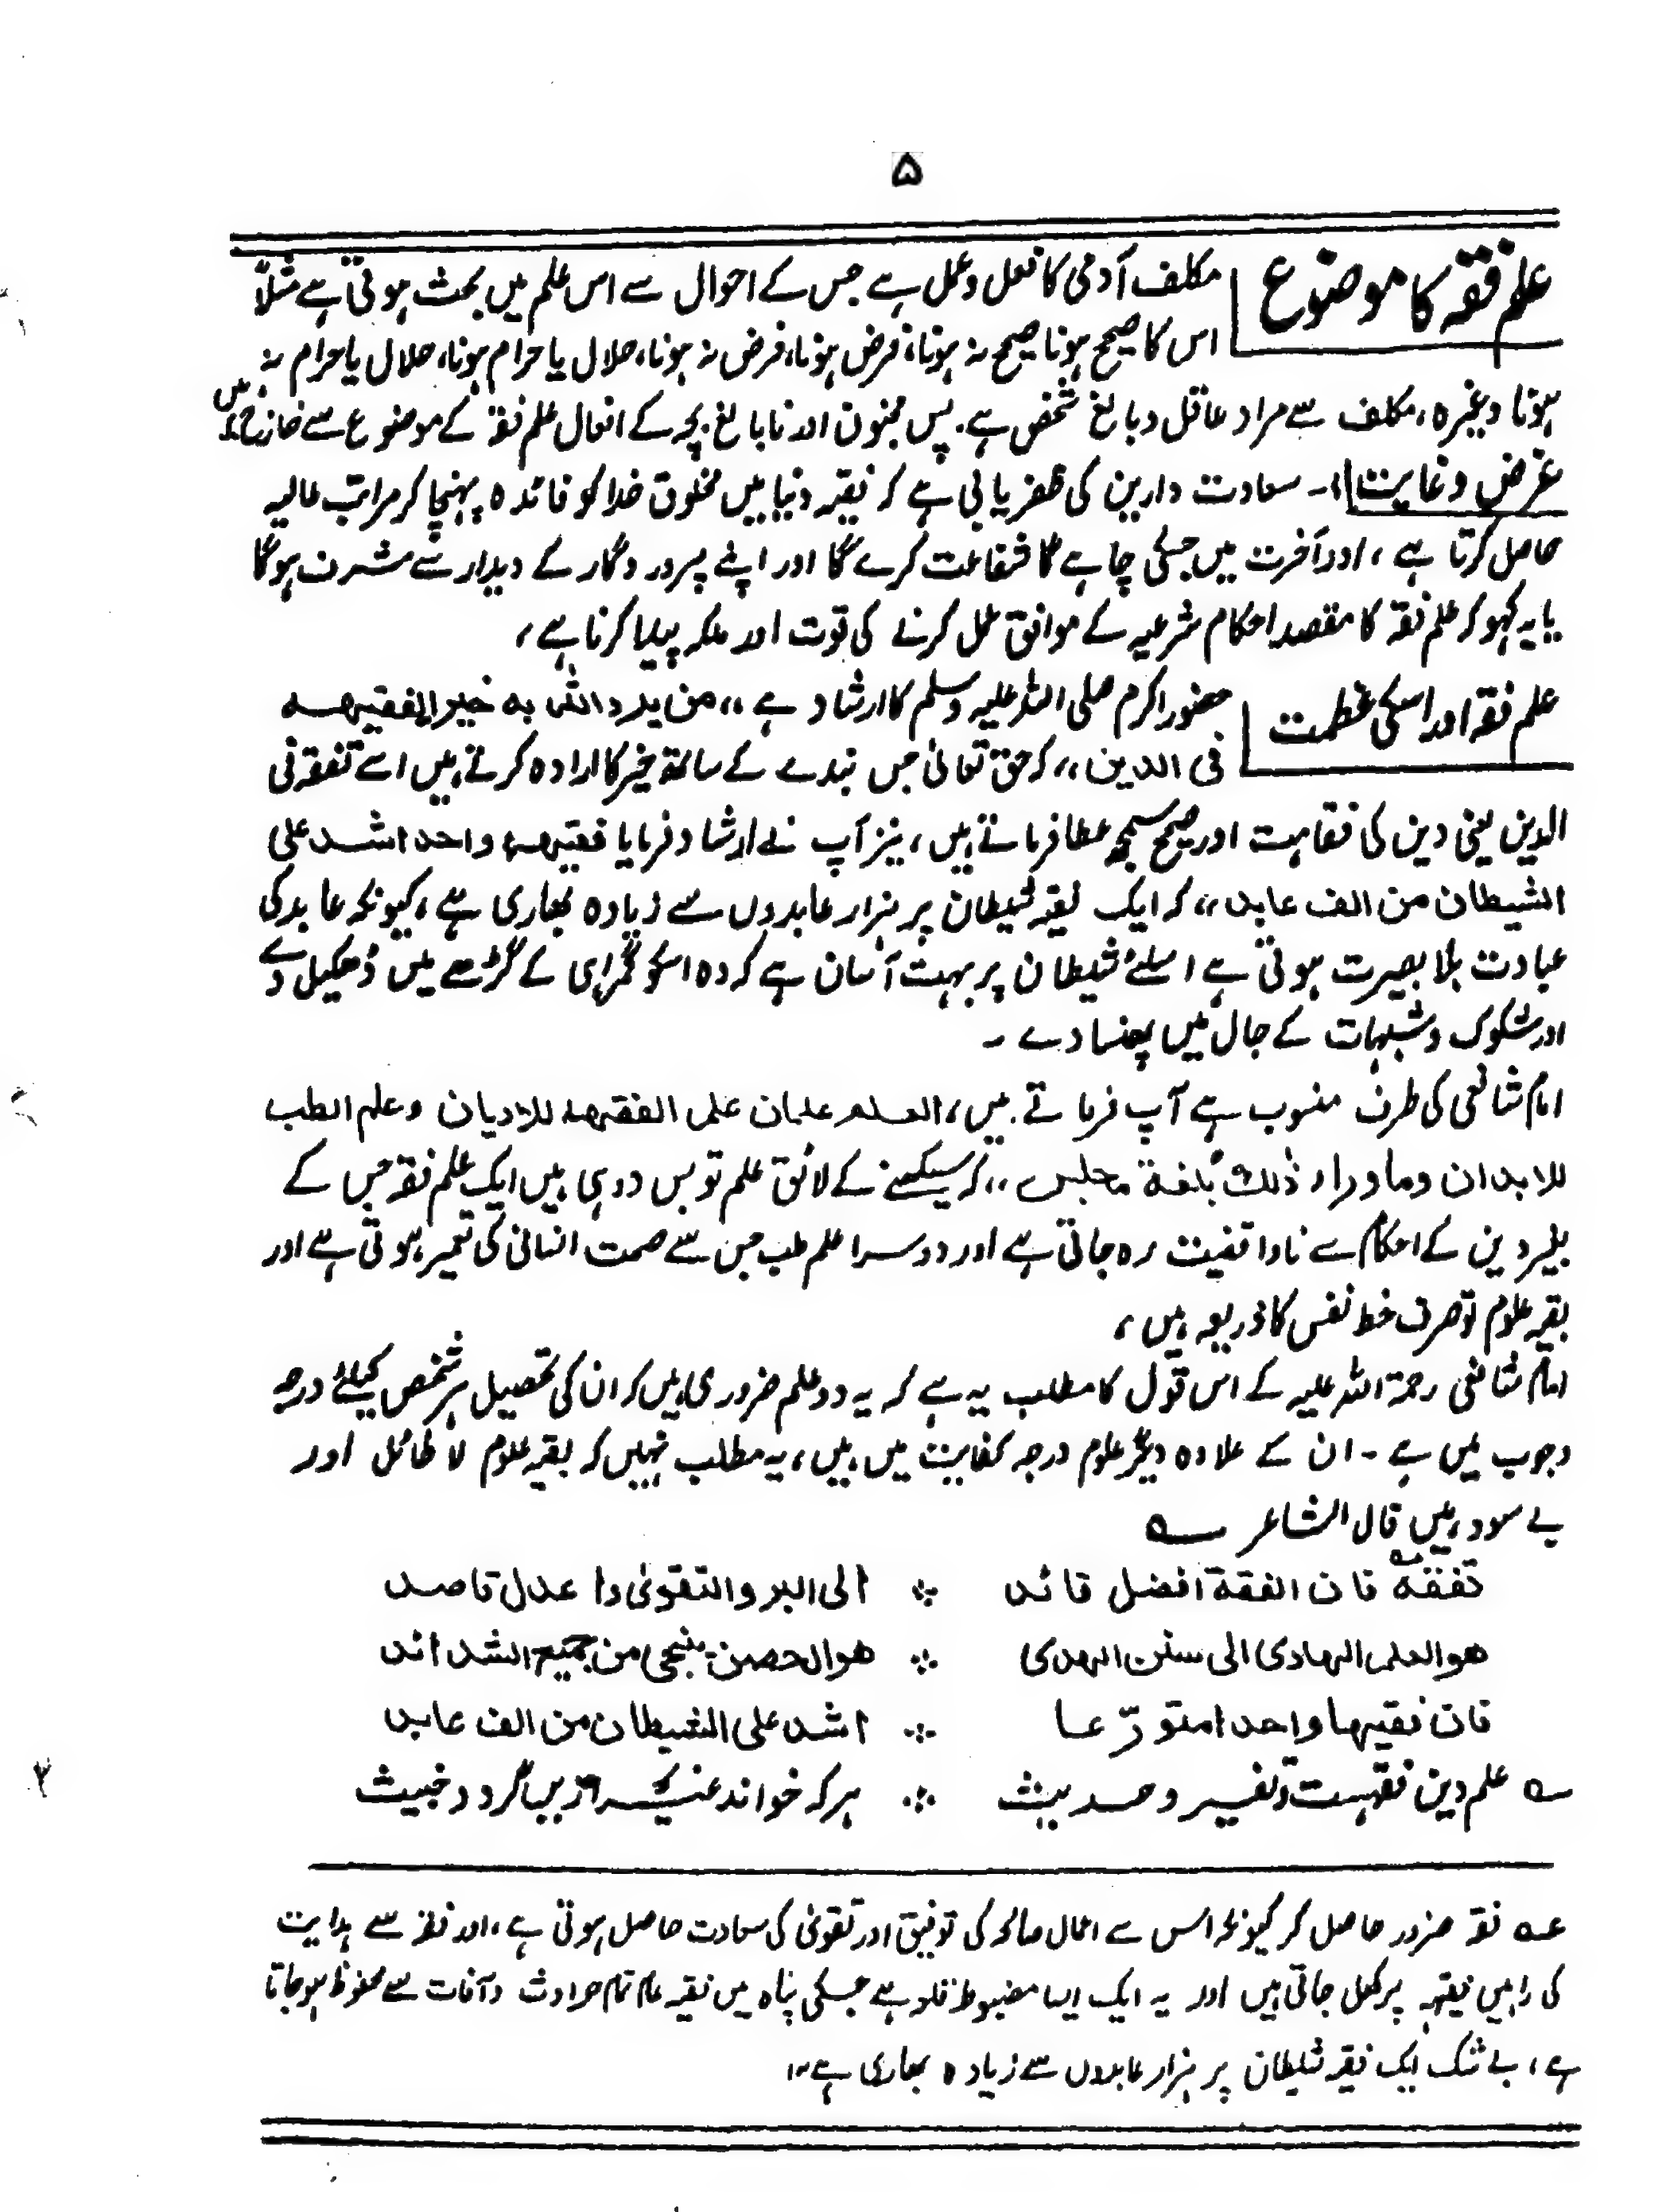 ۵
علم فقہ کا موضوع
مکلف آدمی کا فعل وعمل ہے جس کے احوال سے اس علم میں بحث ہوتی ہے مثلاً
اس کا صحیح ہونا صحیح نہ ہونا، فرض ہونا، فرض نہ ہونا، حلال یا حرام ہونا، حلال یا حرام نہ
ہونا وغیرہ، مکلف سے مراد عاقل وبالغ شخص ہے. پس مجنون اور نابالغ بچہ کے افعال علم فقہ کے موضوع سے خارج ہیں
غرض وغایت :۔ سعادت دارین کی ظفریابی ہے کہ فقیہ دنیا میں مخلوق خدا کو فائدہ پہنچا کر مراتب عالیہ
حاصل کرتا ہے، اور آخرت میں جسکی چاہے گا شفاعت کرے گا اور اپنے پروردگار کے دیدار سے مشرف ہوگا
یا یہ کہو کہ علم فقہ کا مقصد احکام شرعیہ کے موافق عمل کرنے کی قوت اور ملکہ پیدا کرنا ہے،
علم فقہ اور اسکی عظمت
حضور اکرم صلی اللہ علیہ وسلم کا ارشاد ہے ،،من یرد اللہ بہ خیرا یفقہہ
فی الدین،، کہ حق تعالیٰ جس بندے کے ساتھ خیر کا ارادہ کرتے ہیں اسے تفقہ فی
الدین یعنی دین کی فقاہت اور صحیح سمجھ عطا فرماتے ہیں، نیز آپ نے ارشاد فرمایا فقیہ واحد اشد علی
الشیطان من الف عابد،، کہ ایک فقیہ شیطان پر ہزار عابدوں سے زیادہ بھاری ہے، کیونکہ عابد کی
عبادت بلا بصیرت ہوتی ہے اسلئے شیطان پر بہت آسان ہے کہ وہ اسکو گمراہی کے گڑھے میں ڈھکیل دے
اور شکوک وشبہات کے جال میں پھنسا دے ۔
امام شافعی کی طرف منسوب ہے آپ فرماتے ہیں، العلم علمان علم الفقہ للادیان وعلم الطب
للابدان وما وراء ذٰلک بلغۃ مجلس،، کہ سیکھنے کے لائق علم تو بس دو ہی ہیں ایک علم فقہ جس کے
بغیر دین کے احکام سے ناواقفیت رہ جاتی ہے اور دوسرا علم طب جس سے صحت انسانی کی تعمیر ہوتی ہے اور
بقیہ علوم تو صرف حظ نفس کا ذریعہ ہیں،
امام شافعی رحمۃ اللہ علیہ کے اس قول کا مطلب یہ ہے کہ یہ دو علم ضروری ہیں کہ ان کی تحصیل ہر شخص کیلئے درجہ
وجوب میں ہے ۔ ان کے علاوہ دیگر علوم درجہ کفایت میں ہیں، یہ مطلب نہیں کہ بقیہ علوم لا طائل اور
بے سود ہیں قال الشاعر ؎
تفقہ عہ فان الفقہ افضل قائد ؞ الی البر والتقویٰ واعدل قاصد
ھو العلم الہادی الی سنن الہدی ؞ ھو الحصن ینجی من جمیع الشدائد
فان فقیہا واحدا متورّعا ؞ اشد علی الشیطان من الف عابد
؎ علم دین فقہست وتفسیر وحدیث ؞ ہر کہ خواند غیر ازیں گردد خبیث
عہ فقہ ضرور حاصل کر کیونکہ اس سے اعمال صالحہ کی توفیق اور تقویٰ کی سعادت حاصل ہوتی ہے، اور فقہ سے ہدایت
کی راہیں فقیہ پر کھل جاتی ہیں اور یہ ایک ایسا مضبوط قلعہ ہے جسکی پناہ میں فقیہ عالم تمام حوادث وآفات سے محفوظ ہو جاتا
ہے، بے شک ایک فقیہ شیطان پر ہزار عابدوں سے زیادہ بھاری ہے ۱۲